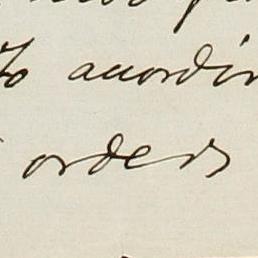 to accordin
orders